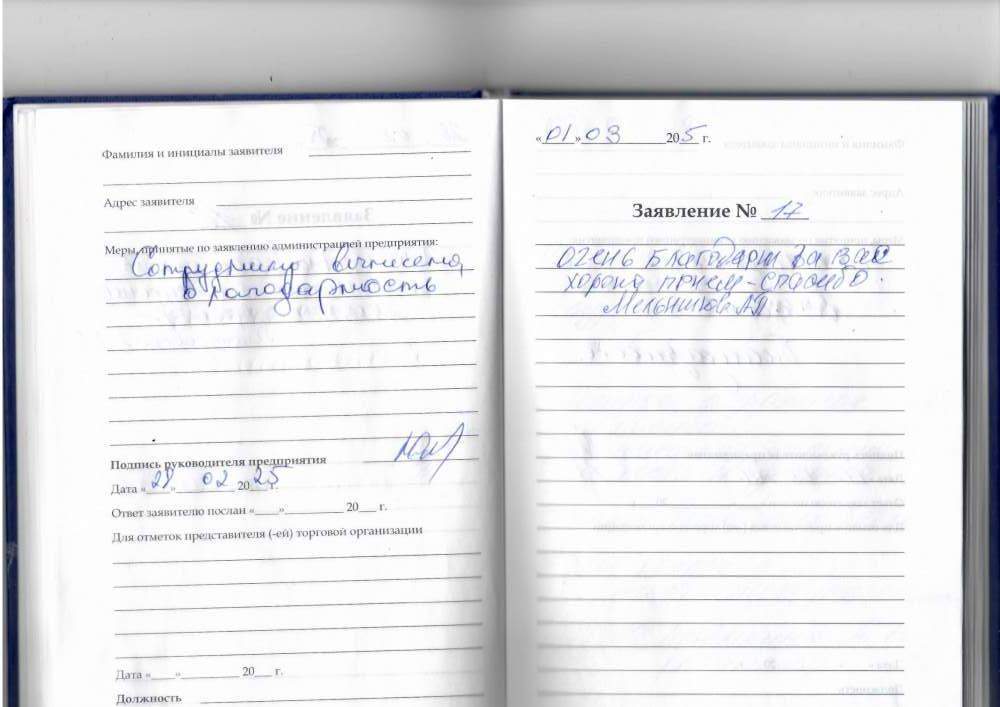 Фамилия и инициалы заявителя
Адрес заявителя
Меры, принятые по заявлению администрацией предприятия:
Сотруднику вынесена
благодарность
Подпись руководителя предприятия
Дата «28» 02 2025 г.
Ответ заявителю послан «___»__________ 20___ г.
Для отметок представителя (-ей) торговой организации
Дата «___»__________ 20___ г.
Должность
«01» 03 205 г.
Заявление № 17
очень благодарны за вас
хороший прием - спасибо.
Мельникова